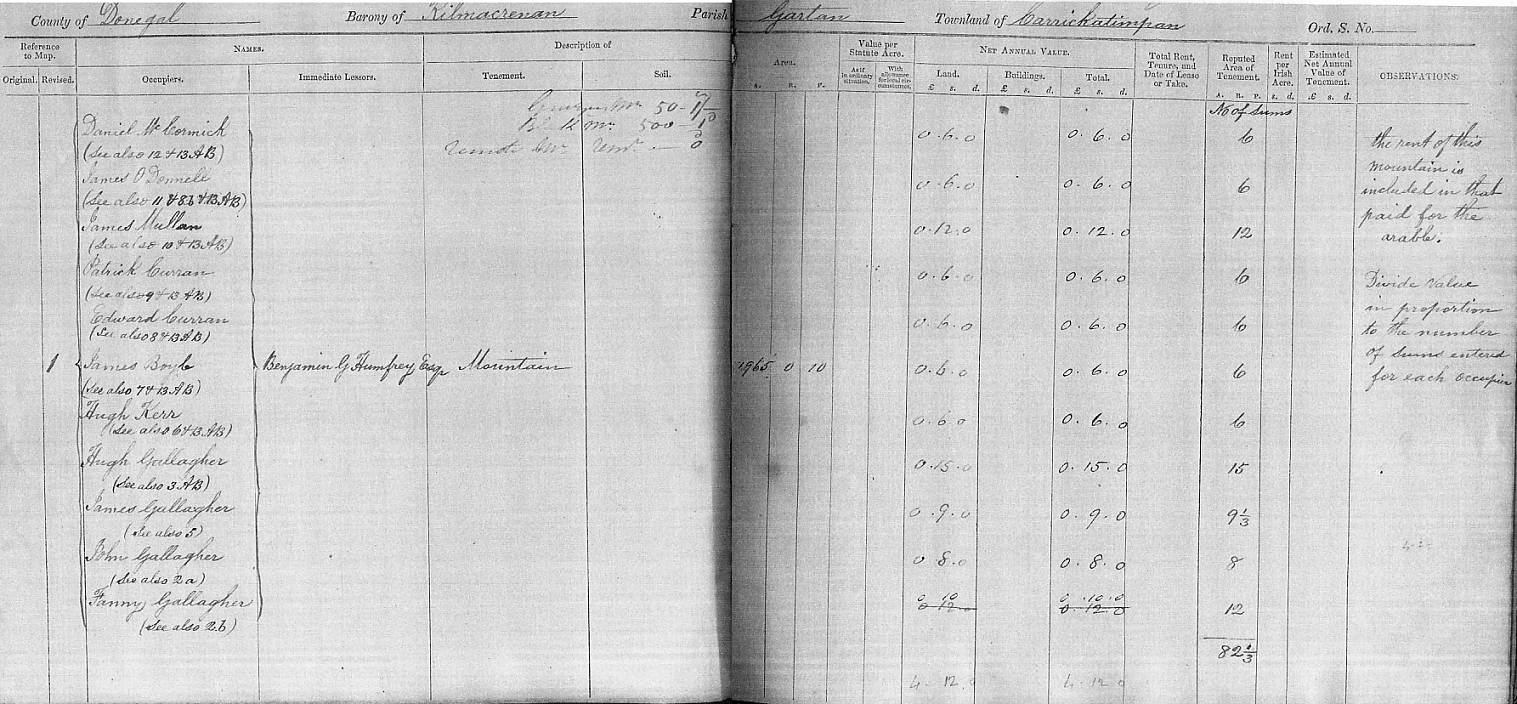 County of Donegal Barony of Kilmacrenan Parish Gartan Townland of Carrickatimpan Ord. S. No.
Reference to Map. NAMES. Description of Area. Value per Statute Acre. NET ANNUAL VALUE. Total Rent, Tenure, and Date of Lease or Take. Reputed Area of Tenement. Rent per Irish Acre. Estimated Net Annual Value of Tenement. OBSERVATIONS.
Original. Revised. Occupiers. Immediate Lessors. Tenement. Soil. As if in ordinary situation. With allowance for local circumstances. Land. Buildings. Total.
A. R. P. £ s. d. £ s. d. £ s. d. A. R. P. s. d. £ s. d.
No of Sums
50 - 1/
500 -
Daniel McCormick 0. 6. 0 0. 6. 0 6
(See also 12 & 13 AB)
James O'Donnell 0. 6. 0 0. 6. 0 6
(See also 11 & 8b & 13 AB)
James Mullan 0. 12. 0 0. 12. 0 12
(See also 10 & 13 AB)
Patrick Curran 0. 6. 0 0. 6. 0 6
(See also 9 & 13 AB)
Edward Curran 0. 6. 0 0. 6. 0 6
(See also 8 & 13 AB)
1 James Boyle Benjamin G Humfrey Esqr Mountain 1965 0 10 0. 6. 0 0. 6. 0 6
(See also 7 & 13 AB)
Hugh Kerr 0. 6. 0 0. 6. 0 6
(See also 6 & 13 AB)
Hugh Gallagher 0. 15. 0 0. 15. 0 15
(See also 3 AB)
James Gallagher 0. 9. 0 0. 9. 0 9 1/3
(See also 5)
John Gallagher 0. 8. 0 0. 8. 0 8
(See also 2a)
0 10 0 . 10. 0
Fanny Gallagher 0 12. 0 0. 12. 0 12
(See also 2b)
82 1/3
4. 12. 0 4. 12 0
the rent of this
mountain is
included in that
paid for the
arable.
Divide value
in proportion
to the number
of Sums entered
for each occupier